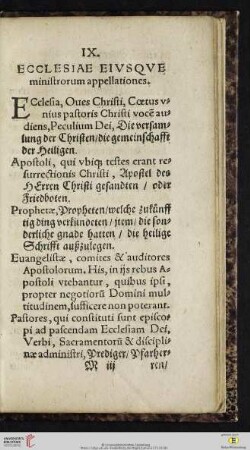 IX.
ECCLESIAE EIVSQVE
ministrorum appellationes.
ECclesia, Oues Christi, Cœtus v-
nius pastoris Christi vocẽ au-
diens, Peculium Dei, Die versam-
lung der Christen/die gemeinschafft
der Heiligen.
Apostoli, qui vbiq; testes erant re-
surrectionis Christi, Apostel des
HErren Christi gesandten / oder
Friedboten.
Prophetæ, Propheten/welche zukünff
tig ding verkündeten / item/ die son-
derliche gnade hatten / die heilige
Schrifft außzulegen.
Euangelistæ, comites & auditores
Apostolorum. His, in ijs rebus A-
postoli vtebantur, quibus ipsi,
propter negotiorũ Domini mul-
titudinem, sufficere non poterant.
Pastores, qui constituti sunt episco-
pi ad pascendam Ecclesiam Dei,
Verbi, Sacramentorũ & discipli-
næ administri, Prediger/ Pfarher-
M iij ren/